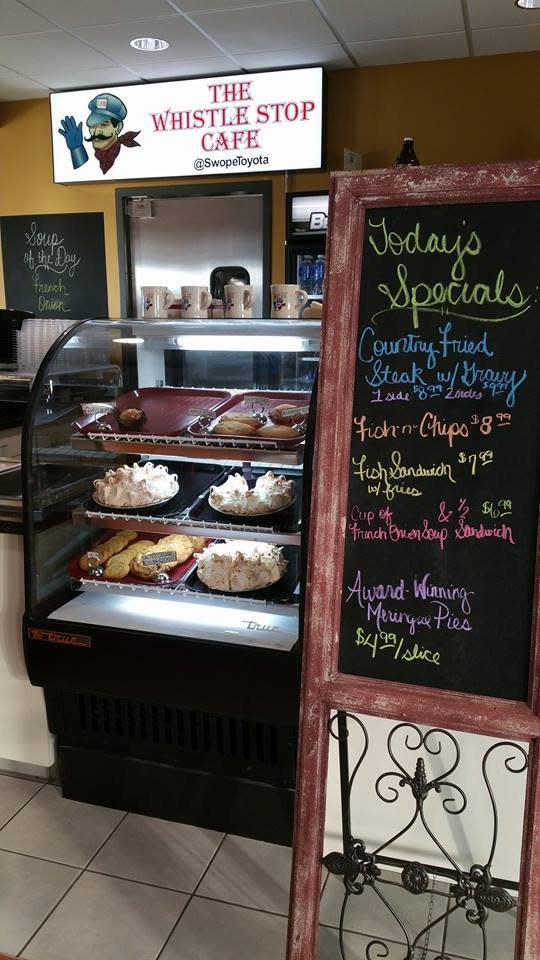 THE
WHISTLE STOP
CAFE
@SwopeToyota
Soup
of the Day
French
Onion
Today's
Specials:
Country Fried
Steak w/ Gravy
1 side $8.99 2 sides $9.99
Fish-n-Chips $8.99
Fish Sandwich $7.99
w/ fries
Cup of & 1/2 $6.99
French Onion Soup Sandwich
Award-Winning
Meringue Pies
$4.99/slice
true
true